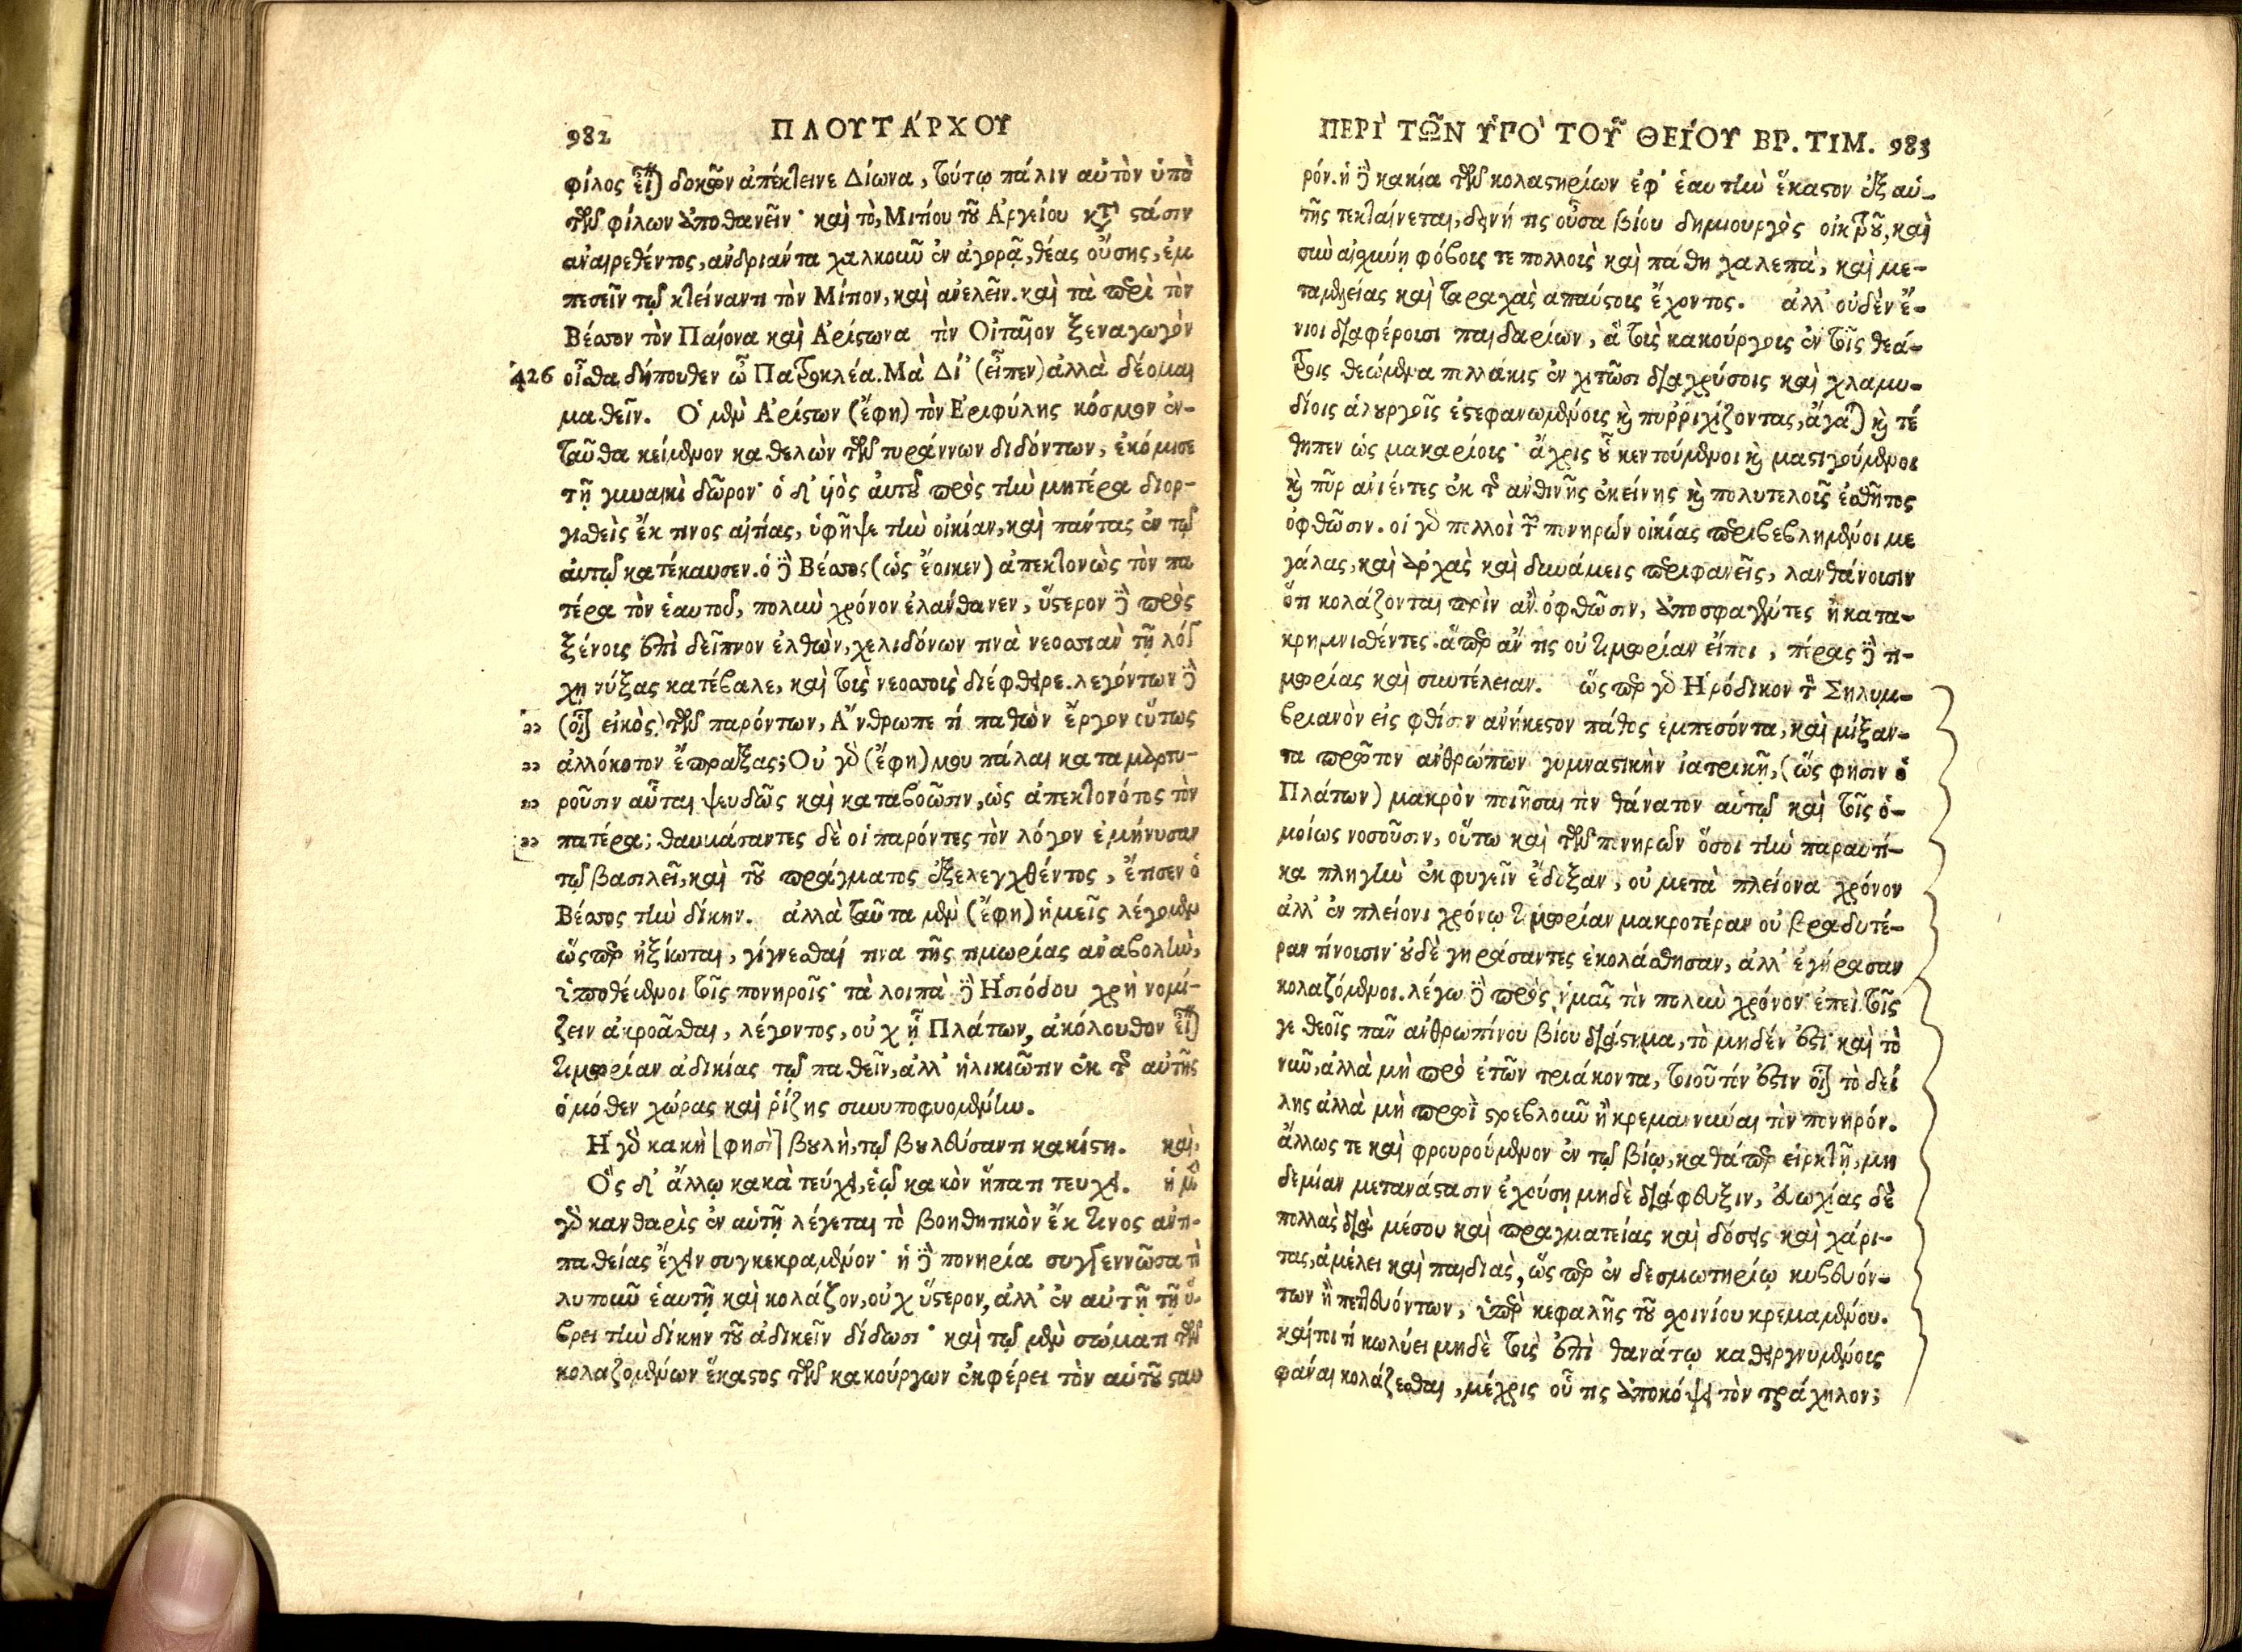 982 ΠΛΟΥΤΑΡΧΟΥ
φίλος εἶναι δοκῶν ἀπέκτεινε Δίωνα, τούτῳ πάλιν αὐτὸν ὑπὸ
τῶν φίλων ἀποθανεῖν· καὶ τὸ, Μιτίου τοῦ Ἀργείου κατὰ στάσιν
ἀναιρεθέντος, ἀνδριάντα χαλκοῦν ἐν ἀγορᾷ, θέας οὔσης, ἐμ
πεσεῖν τῷ κτείναντι τὸν Μίτιον, καὶ ἀνελεῖν. καὶ τὰ περὶ τὸν
Βέσσον τὸν Παίονα καὶ Ἀρίστωνα τὸν Οἰταῖον ξεναγωγὸν
426 οἶσθα δήπουθεν ὦ Πατροκλέα. Μὰ Δί' (εἶπεν) ἀλλὰ δέομαι
μαθεῖν. Ὁ μὲν Ἀρίστων (ἔφη) τὸν Ἐριφύλης κόσμον ἐν-
ταῦθα κείμενον καθελὼν τῶν τυράννων διδόντων, ἐκόμισε
τῇ γυναικὶ δῶρον· ὁ δ' υἱὸς αὐτοῦ πρὸς τὴν μητέρα διορ-
γισθεὶς ἔκ τινος αἰτίας, ὑφῆψε τὴν οἰκίαν, καὶ πάντας ἐν τῷ
αὐτῷ κατέκαυσεν. ὁ δὲ Βέσσος (ὡς ἔοικεν) ἀπεκτονὼς τὸν πα
τέρα τὸν ἑαυτοῦ, πολὺν χρόνον ἐλάνθανεν, ὕστερον δὲ πρὸς
ξένους ἐπὶ δεῖπνον ἐλθὼν, χελιδόνων τινὰ νεοσσιὰν τῇ λόγ
χῃ νύξας κατέβαλε, καὶ τοὺς νεοσσοὺς διέφθειρε. λεγόντων δὲ
» (οἷον εἰκὸς) τῶν παρόντων, Ἄνθρωπε τί παθὼν ἔργον οὕτως
» ἀλλόκοτον ἔπραξας; Οὐ γὰρ (ἔφη) μου πάλαι καταμαρτυ-
» ροῦσιν αὗται ψευδῶς καὶ καταβοῶσιν, ὡς ἀπεκτονότος τὸν
» πατέρα; θαυμάσαντες δὲ οἱ παρόντες τὸν λόγον ἐμήνυσαν
τῷ βασιλεῖ, καὶ τοῦ πράγματος ἐξελεγχθέντος, ἔτισεν ὁ
Βέσσος τὴν δίκην. ἀλλὰ ταῦτα μὲν (ἔφη) ἡμεῖς λέγομεν
ὥσπερ ἠξίωται, γίγνεσθαί τινα τῆς τιμωρίας ἀναβολὴν,
ὑποθέμενοι τοῖς πονηροῖς· τὰ λοιπὰ δὲ Ἡσιόδου χρὴ νομί-
ζειν ἀκροᾶσθαι, λέγοντος, οὐχ ᾗ Πλάτων, ἀκόλουθον εἶναι
τιμωρίαν ἀδικίας τῷ παθεῖν, ἀλλ' ἡλικιῶτιν ἐκ τῆς αὐτῆς
ὁμόθεν χώρας καὶ ῥίζης συνυποφυομένην.
Ἡ γὰρ κακὴ [φησὶ] βουλὴ, τῷ βουλεύσαντι κακίστη. καὶ,
Ὃς δ' ἄλλῳ κακὰ τεύχει, ἑῷ κακὸν ἥπατι τεύχει. ἡ μὲν
γὰρ κανθαρὶς ἐν αὑτῇ λέγεται τὸ βοηθητικὸν ἔκ τινος ἀντι-
παθείας ἔχειν συγκεκραμένον· ἡ δὲ πονηρία συγγεννῶσα τὸ
λυποῦν ἑαυτῇ καὶ κολάζον, οὐχ ὕστερον, ἀλλ' ἐν αὐτῇ τῇ ὕ-
βρει τὴν δίκην τοῦ ἀδικεῖν δίδωσι· καὶ τῷ μὲν σώματι τῶν
κολαζομένων ἕκαστος τῶν κακούργων ἐκφέρει τὸν αὑτοῦ σταυ
ΠΕΡῚ ΤΩ͂Ν ὙΠῸ ΤΟΥ͂ ΘΕΊΟΥ ΒΡ. ΤΙΜ. 983
ρόν. ἡ δὲ κακία τῶν κολαστηρίων ἐφ' ἑαυτὴν ἕκαστον ἐξ αὑ-
τῆς τεκταίνεται, δεινή τις οὖσα βίου δημιουργὸς οἰκτροῦ, καὶ
σὺν αἰσχύνῃ φόβοις τε πολλοὺς καὶ πάθη χαλεπὰ, καὶ με-
ταμελείας καὶ ταραχὰς ἀπαύστους ἔχοντος. ἀλλ' οὐδὲν ἔ-
νιοι διαφέρουσι παιδαρίων, ἃ τοὺς κακούργους ἐν τοῖς θεά-
τροις θεώμενα πολλάκις ἐν χιτῶσι διαχρύσοις καὶ χλαμυ-
δίοις ἁλουργοῖς ἐστεφανωμένους καὶ πυῤῥιχίζοντας, ἄγαται καὶ τέ
θηπεν ὡς μακαρίους· ἄχρις οὗ κεντούμενοι καὶ μαστιγούμενοι
καὶ πῦρ ἀνιέντες ἐκ τῆς ἀνθινῆς ἐκείνης καὶ πολυτελοῦς ἐσθῆτος
ὀφθῶσιν. οἱ γὰρ πολλοὶ τῶν πονηρῶν οἰκίας περιβεβλημένοι με
γάλας, καὶ ἀρχὰς καὶ δυνάμεις περιφανεῖς, λανθάνουσιν
ὅτι κολάζονται πρὶν ἂν ὀφθῶσιν, ἀποσφαγέντες ἢ κατα-
κρημνισθέντες. ἅπερ ἄν τις οὐ τιμωρίαν εἴποι, πέρας δὲ τι-
μωρίας καὶ συντέλειαν. ὥσπερ γὰρ Ἡρόδικον τὸν Σηλυμ-
βριανὸν εἰς φθίσιν ἀνήκεστον πάθος ἐμπεσόντα, καὶ μίξαν-
τα πρῶτον ἀνθρώπων γυμναστικὴν ἰατρικῇ, (ὥς φησιν ὁ
Πλάτων) μακρὸν ποιῆσαι τὸν θάνατον αὑτῷ καὶ τοῖς ὁ-
μοίως νοσοῦσιν, οὕτω καὶ τῶν πονηρῶν ὅσοι τὴν παραυτί-
κα πληγὴν ἐκφυγεῖν ἔδοξαν, οὐ μετὰ πλείονα χρόνον
ἀλλ' ἐν πλείονι χρόνῳ τιμωρίαν μακροτέραν οὐ βραδυτέ-
ραν τίνουσιν· οὐδὲ γηράσαντες ἐκολάσθησαν, ἀλλ' ἐγήρασαν
κολαζόμενοι. λέγω δὲ πρὸς ἡμᾶς τὸν πολὺν χρόνον· ἐπεὶ τοῖς
γε θεοῖς πᾶν ἀνθρωπίνου βίου διάστημα, τὸ μηδέν ἐστι· καὶ τὸ
νῦν, ἀλλὰ μὴ πρὸ ἐτῶν τριάκοντα, τοιοῦτόν ἐστιν οἷον τὸ δεί
λης ἀλλὰ μὴ πρωῒ στρεβλοῦν ἢ κρεμαννύναι τὸν πονηρόν.
ἄλλως τε καὶ φρουρούμενον ἐν τῷ βίῳ, καθάπερ εἱρκτῇ, μη
δεμίαν μετανάστασιν ἐχούσῃ μηδὲ διάφευξιν, εὐωχίας δὲ
πολλὰς διὰ μέσου καὶ πραγματείας καὶ δόσεις καὶ χάρι-
τας, ἀμέλει καὶ παιδιὰς, ὥσπερ ἐν δεσμωτηρίῳ κυβευόν-
των ἢ πεττευόντων, ὑπὲρ κεφαλῆς τοῦ σχοινίου κρεμαμένου.
καίτοι τί κωλύει μηδὲ τοὺς ἐπὶ θανάτῳ καθειργνυμένους
φάναι κολάζεσθαι, μέχρις οὗ τις ἀποκόψει τὸν τράχηλον;